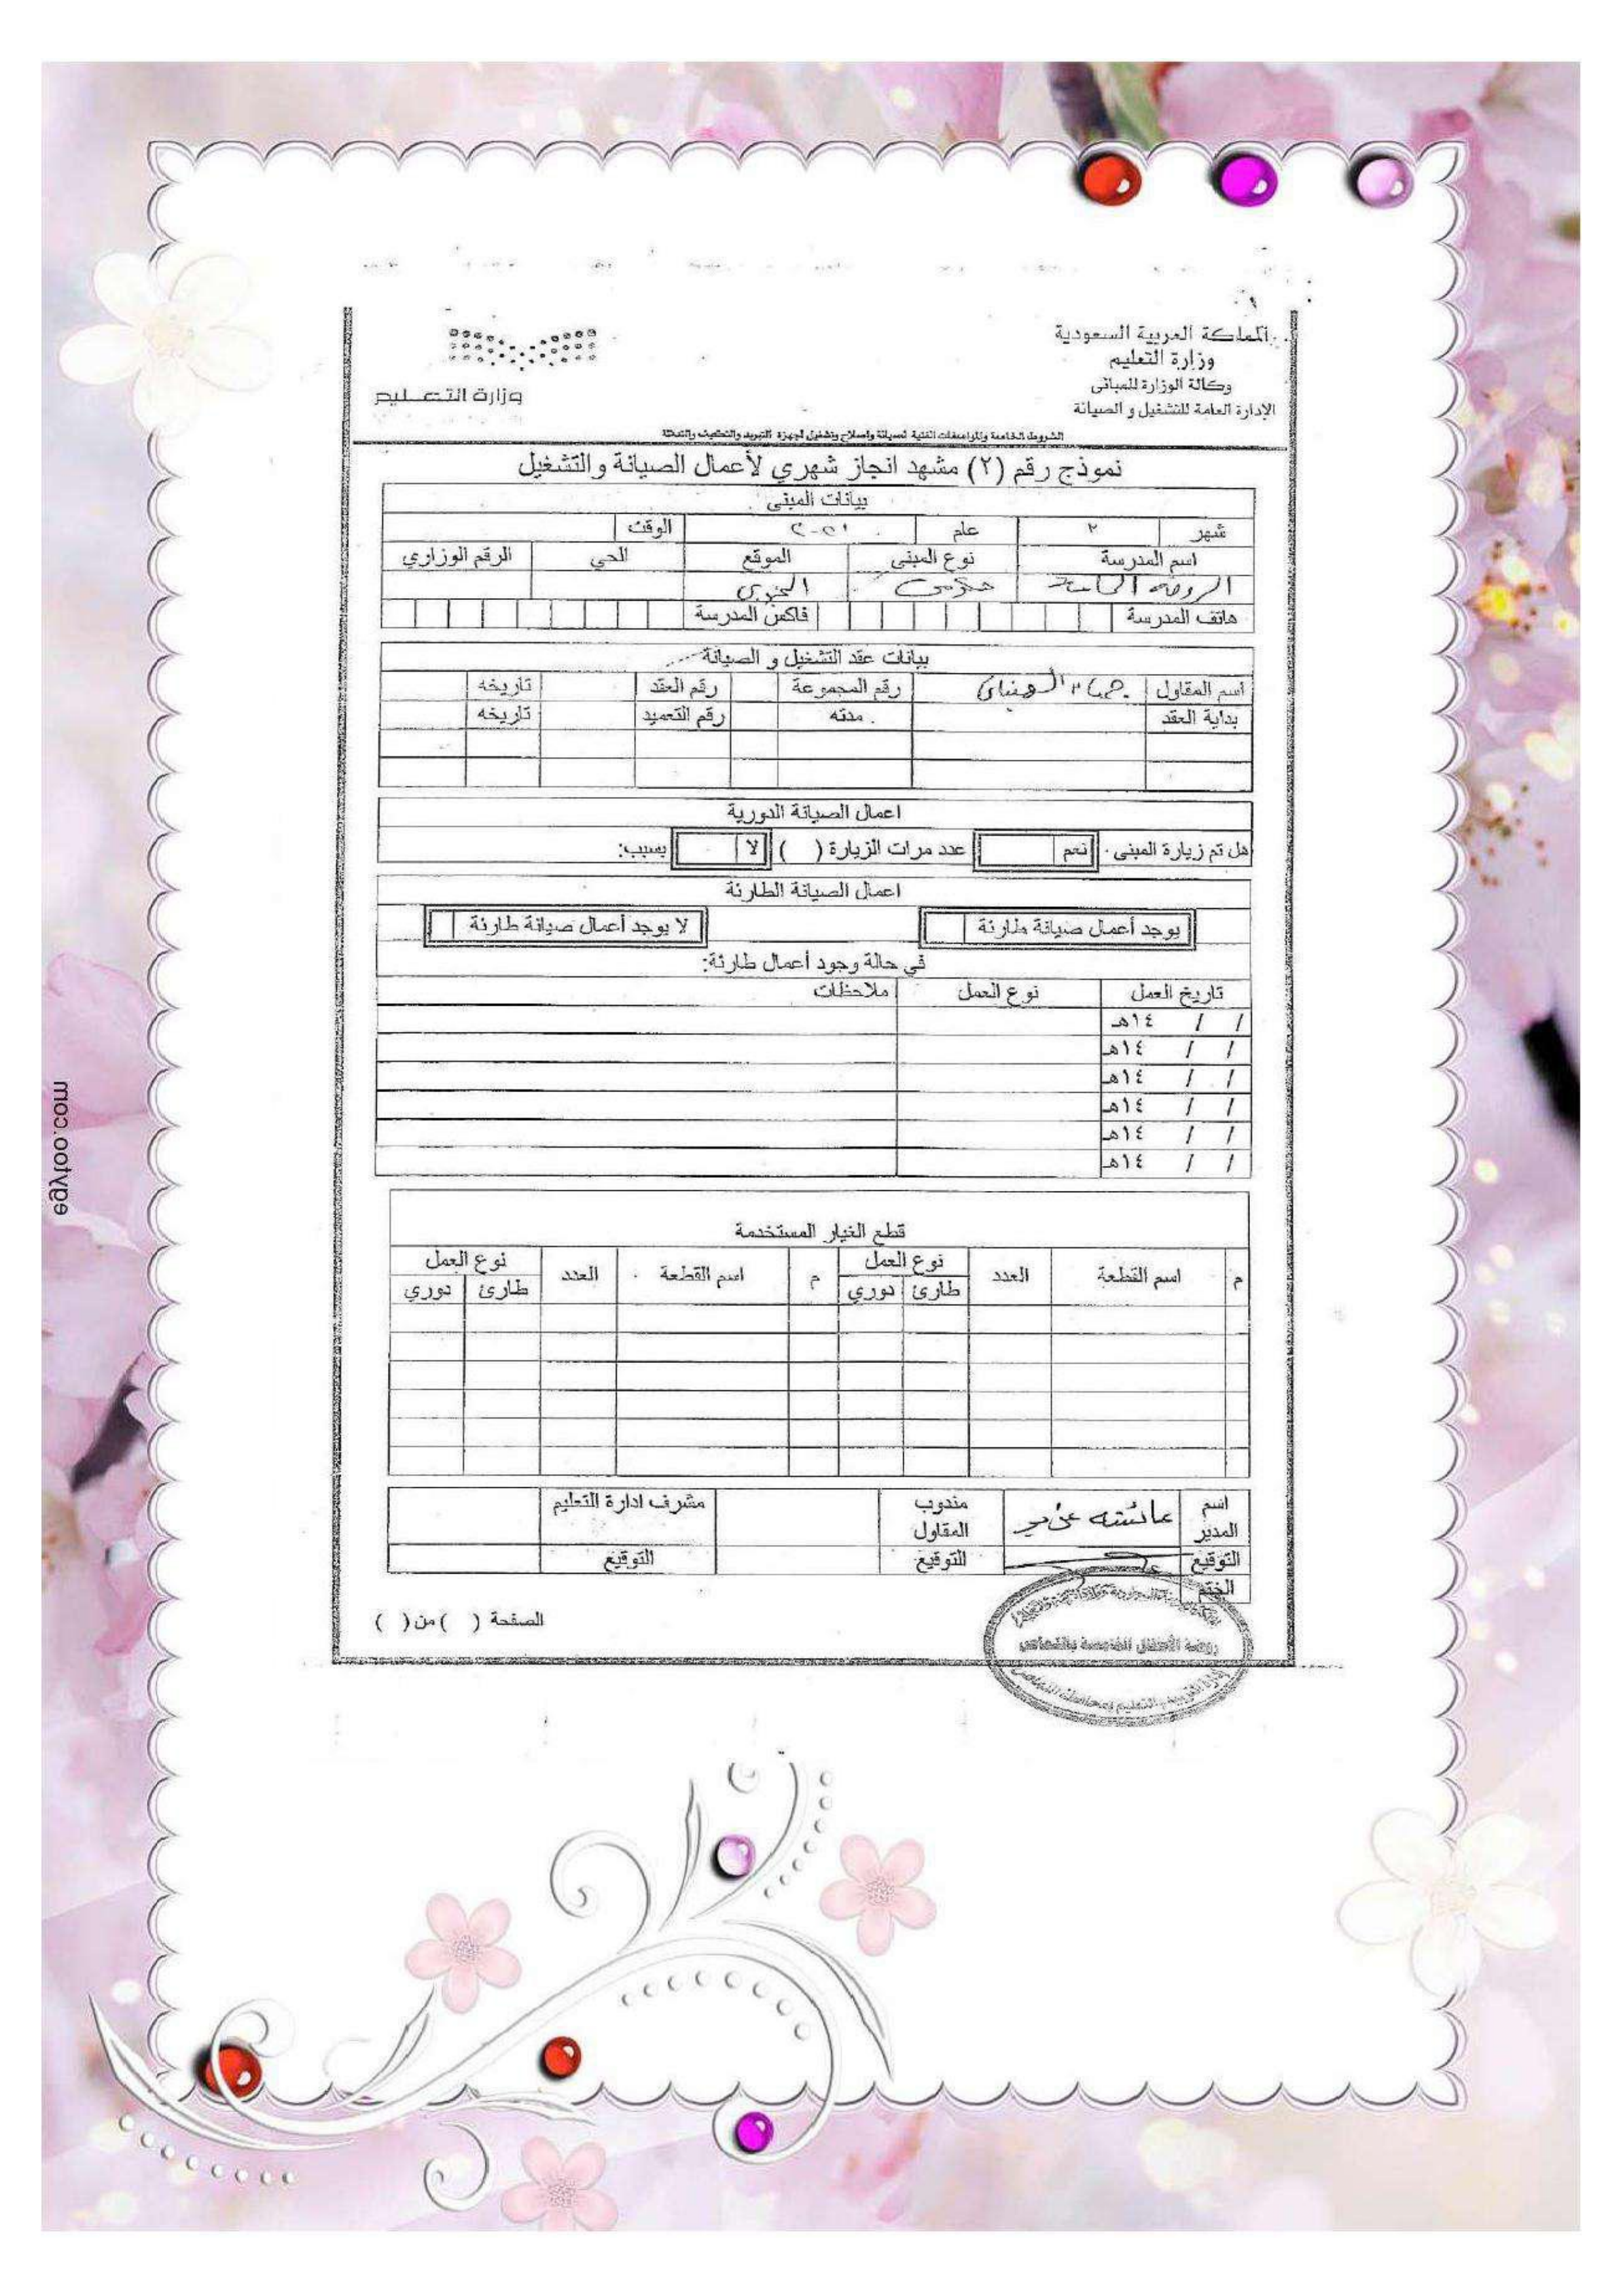 المملكة العربية السعودية
وزارة التعليم
وكالة الوزارة للمباني
الإدارة العامة للتشغيل و الصيانة
وزارة التعليم
الشروط الخاصة والمواصفات الفنية لصيانة واصلاح وتشغيل اجهزة التبريد والتكييف والتدفئة
نموذج رقم (٢) مشهد انجاز شهري لأعمال الصيانة والتشغيل
بيانات المبنى
شهر ٢ عام الوقت
اسم المدرسة نوع المبنى الموقع الحي الرقم الوزاري
الروضة الخامسة حكومي
هاتف المدرسة فاكس المدرسة
بيانات عقد التشغيل و الصيانة
اسم المقاول رقم المجموعة رقم العقد تاريخه
بداية العقد مدته رقم التعميد تاريخه
اعمال الصيانة الدورية
هل تم زيارة المبنى نعم عدد مرات الزيارة ( ) لا بسبب:
اعمال الصيانة الطارئة
يوجد أعمال صيانة طارئة لا يوجد أعمال صيانة طارئة
في حالة وجود أعمال طارئة:
تاريخ العمل نوع العمل ملاحظات
/ / ١٤هـ
/ / ١٤هـ
/ / ١٤هـ
/ / ١٤هـ
/ / ١٤هـ
/ / ١٤هـ
قطع الغيار المستخدمة
م اسم القطعة العدد نوع العمل م اسم القطعة العدد نوع العمل
طارئ دوري طارئ دوري
اسم المدير عائشه مندوب المقاول مشرف ادارة التعليم
التوقيع التوقيع التوقيع
الختم
الصفحة ( ) من ( )
روضة الأطفال الخامسة بالنماص
إدارة التربية والتعليم بمحافظة النماص
egytoo.com